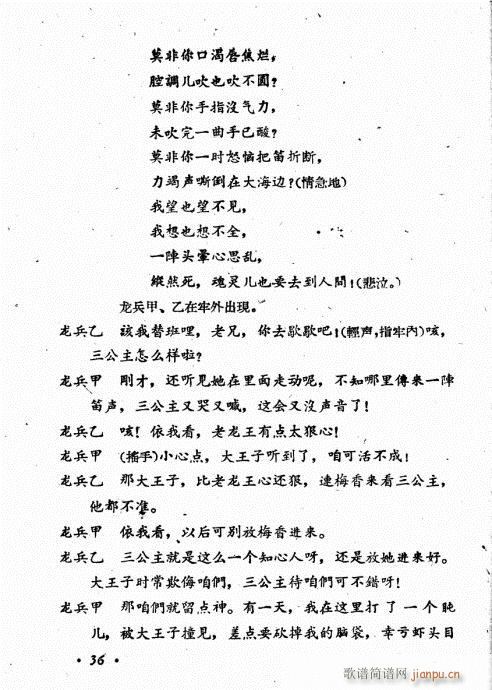 莫非你口渴唇焦烂，
腔調儿吹也吹不圆？
莫非你手指沒气力，
未吹完一曲手已酸？
莫非你一时怒恼把笛折断，
力竭声嘶倒在大海边？（情急地）
我望也望不見，
我想也想不全，
一陣头暈心思乱，
縱然死，魂灵儿也要去到人間！（悲泣。）
龙兵甲、乙在牢外出現。
龙兵乙　該我替班哩，老兄，你去歇歇吧！（輕声，指牢內）咳，
三公主怎么样啦？
龙兵甲　刚才，还听見她在里面走动呢，不知哪里傳来一陣
笛声，三公主又哭又喊，这会又沒声音了！
龙兵乙　咳！依我看，老龙王有点太狠心！
龙兵甲　（搖手）小心点，大王子听到了，咱可活不成！
龙兵乙　那大王子，比老龙王心还狠，連梅香来看三公主，
他都不准。
龙兵甲　依我看，以后可别放梅香进来。
龙兵乙　三公主就是这么一个知心人呀，还是放她进来好。
大王子时常欺侮咱們，三公主待咱們可不錯呀！
龙兵甲　那咱們就留点神。有一天，我在这里打了一个盹
儿，被大王子撞見，差点要砍掉我的脑袋，幸亏虾头目
· 36 ·
歌谱简谱网
jianpu.cn